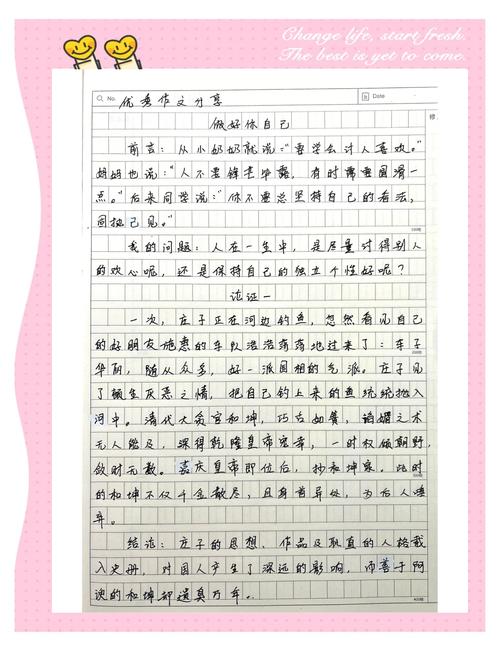 Change life, start fresh.
The best is yet to come.
No. 优秀作文分享
Date
做好你自己
前言：从小奶奶就说："要学会讨人喜欢。"
妈妈也说："人不要锋芒毕露，有时需要圆滑一
点。"后来同学说："你不要总坚持自己的看法，
固执己见。"
我的问题：人在一生中，是尽量讨得别人
的欢心呢，还是保持自己的独立个性好呢？
论证一
一次，庄子正在河边钓鱼，忽然看见自己
的好朋友施惠的车队浩浩荡荡地过来了：车子
华丽，随从众多，好一派国相的气派。庄子见
了顿生厌恶之情，把自己钓上来的鱼统统抛入
河中。清代大贪官和珅，巧舌如簧，谄媚之术
无人能及，深得乾隆皇帝宠幸，一时权倾朝野，
敛财无数。嘉庆皇帝即位后，抄和珅家。此时
的和珅不仅千金散尽，且身首异处，为后人唾
弃。
结论：庄子的思想、作品及耿直的人格载
入史册，对国人产生了深远的影响，而善于阿
谀的和珅却遗臭万年。